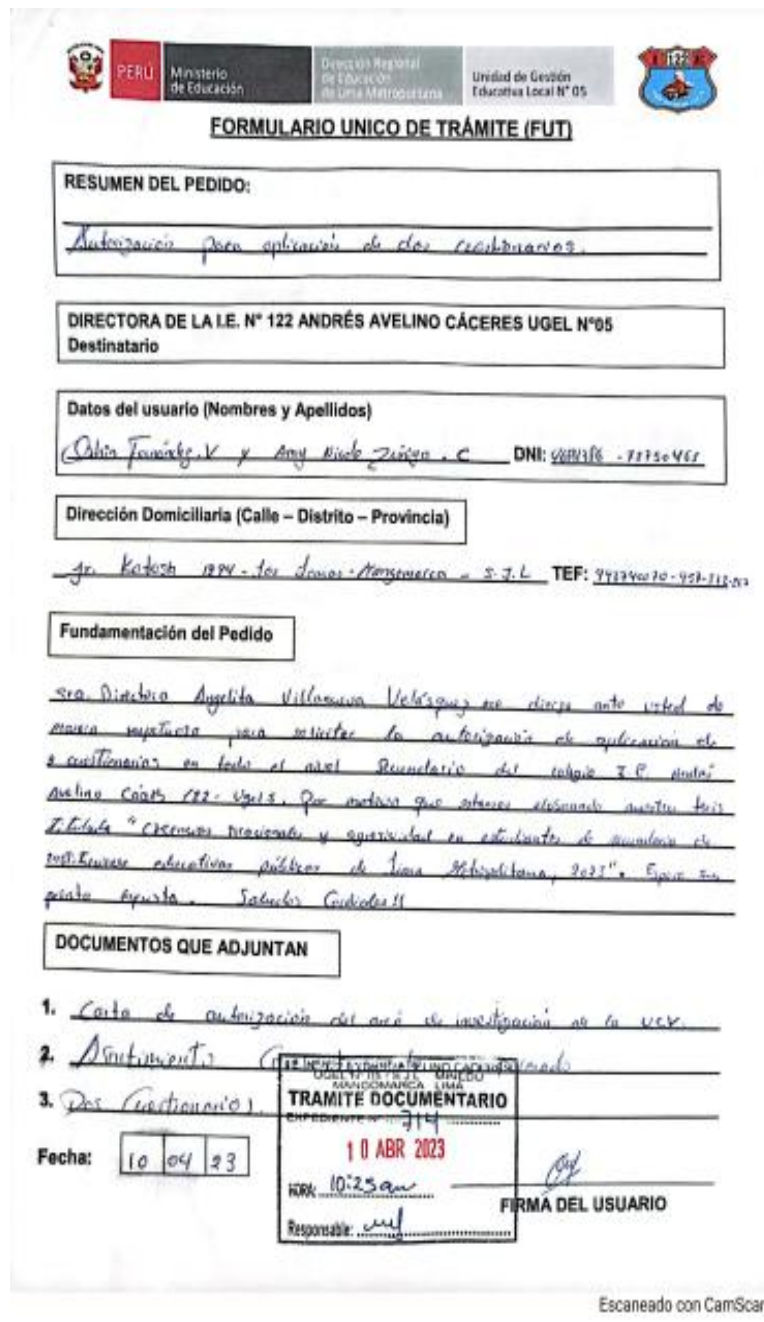 PERÚ
Ministerio
de Educación
Dirección Regional
de Educación
de Lima Metropolitana
Unidad de Gestión
Educativa Local N° 05
122
FORMULARIO UNICO DE TRÁMITE (FUT)
RESUMEN DEL PEDIDO:
Autorización para aplicación de dos cuestionarios.
DIRECTORA DE LA I.E. N° 122 ANDRÉS AVELINO CÁCERES UGEL N°05
Destinatario
Datos del usuario (Nombres y Apellidos)
Fernández. V y Amy Nicole Zuñiga . C DNI:
Dirección Domiciliaria (Calle – Distrito – Provincia)
Jr. Kotosh - Mangomarca - S.J.L TEF:
Fundamentación del Pedido
Sra. Directora Angelita Villanueva Velásquez me dirijo ante usted de
manera respetuosa para solicitar la autorización de aplicación de
2 cuestionarios en todo el nivel Secundario del colegio I.E. Andrés
Avelino 122 - Ugel 5. Por motivos que estamos elaborando nuestra tesis
Titulada " y agresividad en estudiantes de secundaria de
educativas públicas de Lima Metropolitana, 2023". Espero su
pronta Saludos Cordiales!!
DOCUMENTOS QUE ADJUNTAN
1. Carta de autorización del area de investigación de la UCV.
2. Asentimiento
3. Dos Cuestionarios.
MANGOMARCA LIMA
TRAMITE DOCUMENTARIO
EXPEDIENTE N° 714
10 ABR 2023
HORA: 10:25am
Responsable:
Fecha: 10 04 23
FIRMA DEL USUARIO
Escaneado con CamScan